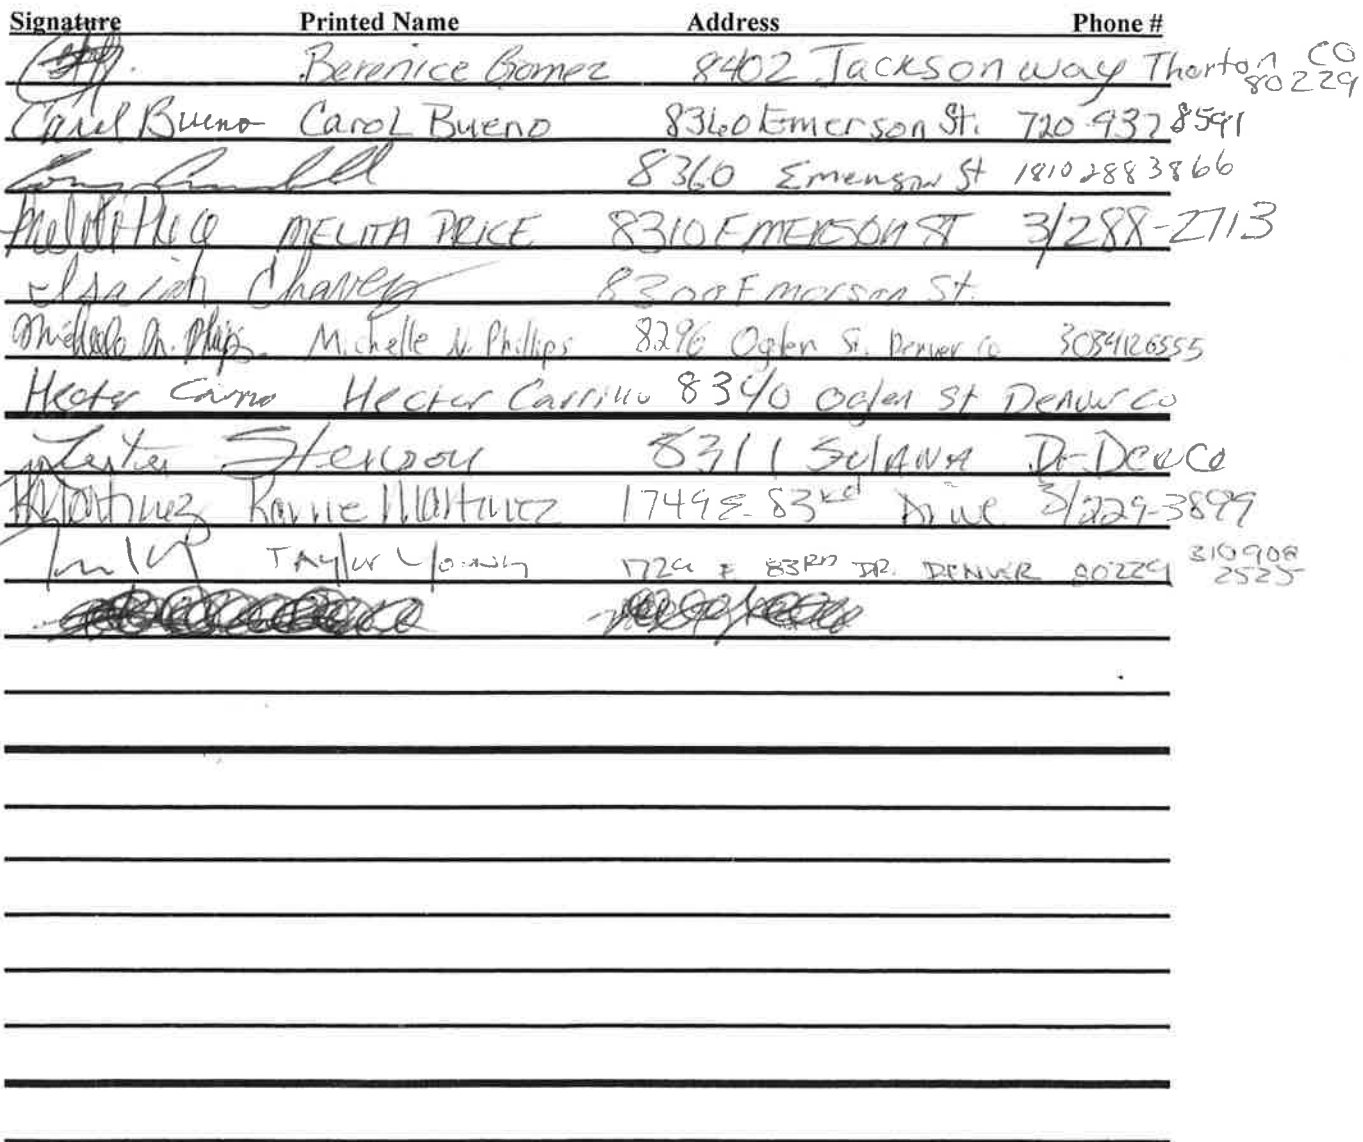 Signature Printed Name Address Phone #
Berenice Gomez 8402 Jackson way Thorton CO 80229
Carol Bueno Carol Bueno 8360 Emerson St. 720 937 8591
8360 Emerson St 1810 288 3866
Melita Price MELITA PRICE 8310 EMERSON ST 3/288-2713
Isaiah Chavez 8300 Emerson St.
Michelle N. Phillips 8296 Ogden St. Denver Co
Hector Carrillo 8340 Ogden St Denver Co
Lester Stenson 8311 Solana Dr
Martinez Martinez 1749 E. 83rd Drive 3/229-3899
Taylor Young E 83RD DR. DENVER 80229 310 908 2525